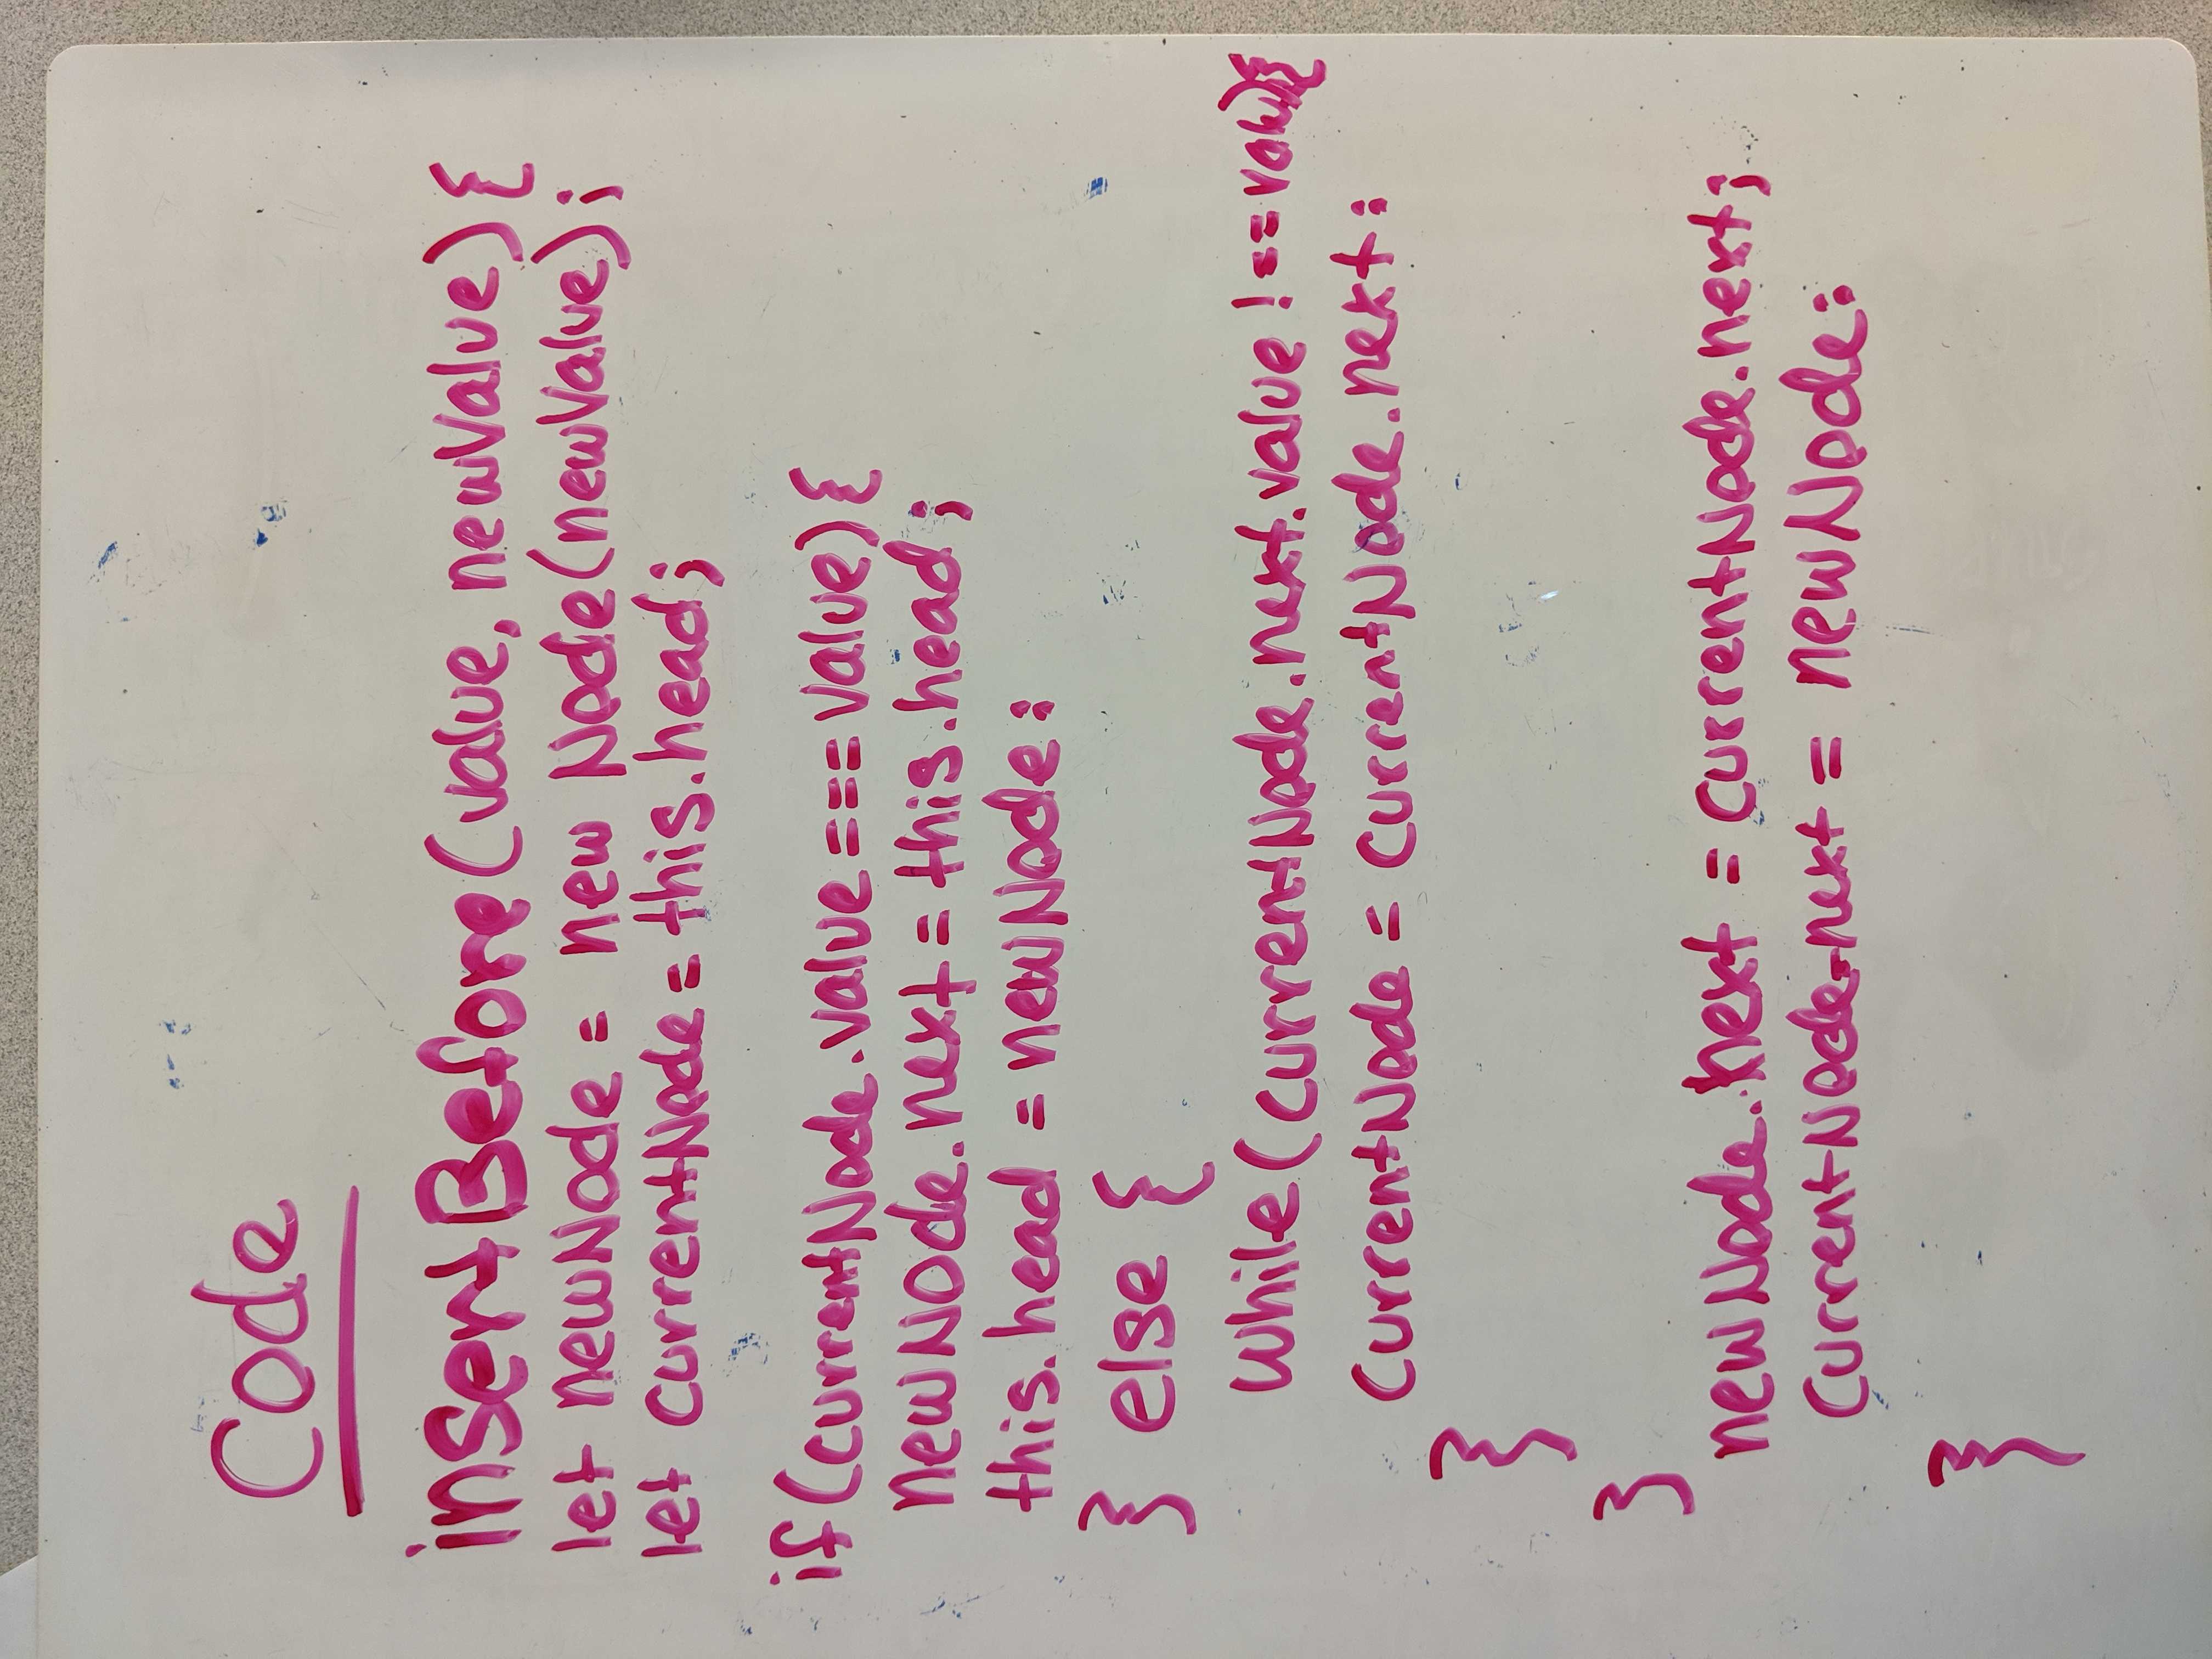 Code
insertBefore(value, newValue) {
let newNode = new Node(newValue);
let currentNode = this.head;
if (currentNode.value === value) {
newNode.next = this.head;
this.head = newNode:
} else {
While (currentNode.next.value !== value){
currentNode = currentNode.next:
}
}
newNode.next = currentNode.next;
currentNode.next = newNode:
}